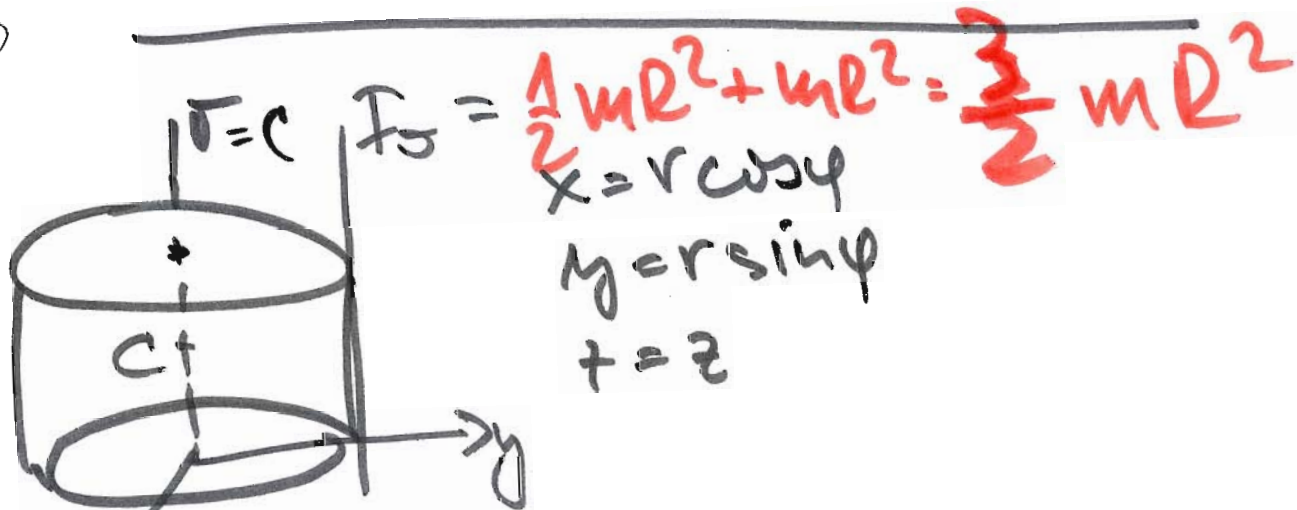 σ=C I₅ = 1/2 mR² + mR² = 3/2 mR²
x = r cosφ
y = r sinφ
z = z
C
y